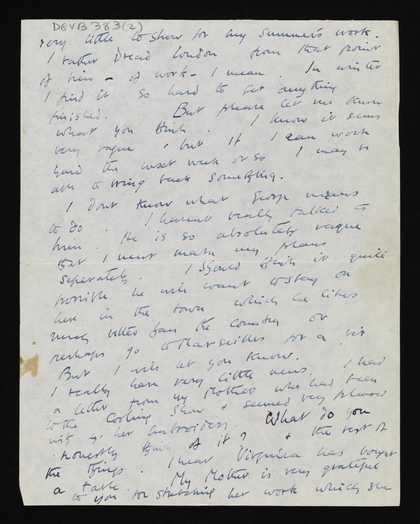 DGVB 383(2)
very little to show for my summer's work.
I rather dread London from that point
of view – of work – I mean. In winter
I find it so hard to get anything
finished. But please let me know
what you think. I know it seems
very vague, but if I can work
hard the next week or so I may be
able to bring back something.
I dont know what George means
to do. I havent really talked to
him. He is so absolutely vague
that I must make my plans
separately. I should think it quite
possible he will want to stay on
here in the town which he likes
much better than the country or
perhaps go to Marseilles for a bit
But I will let you know.
I really have very little news. I had
a letter from my Mother who had been
to the Cooling Show & seemed very pleased
with her embroidery. What do you
honestly think of it? & the rest of
the things. I hear Virginia has bought
a table. My Mother is very grateful
to you for stretching her work which she